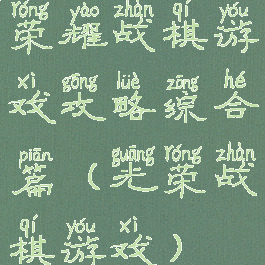 róng yào zhàn qí yóu
荣耀战棋游
xì gōng lüè zōng hé
戏攻略综合
piān guāng róng zhàn
篇(光荣战
qí yóu xì
棋游戏)